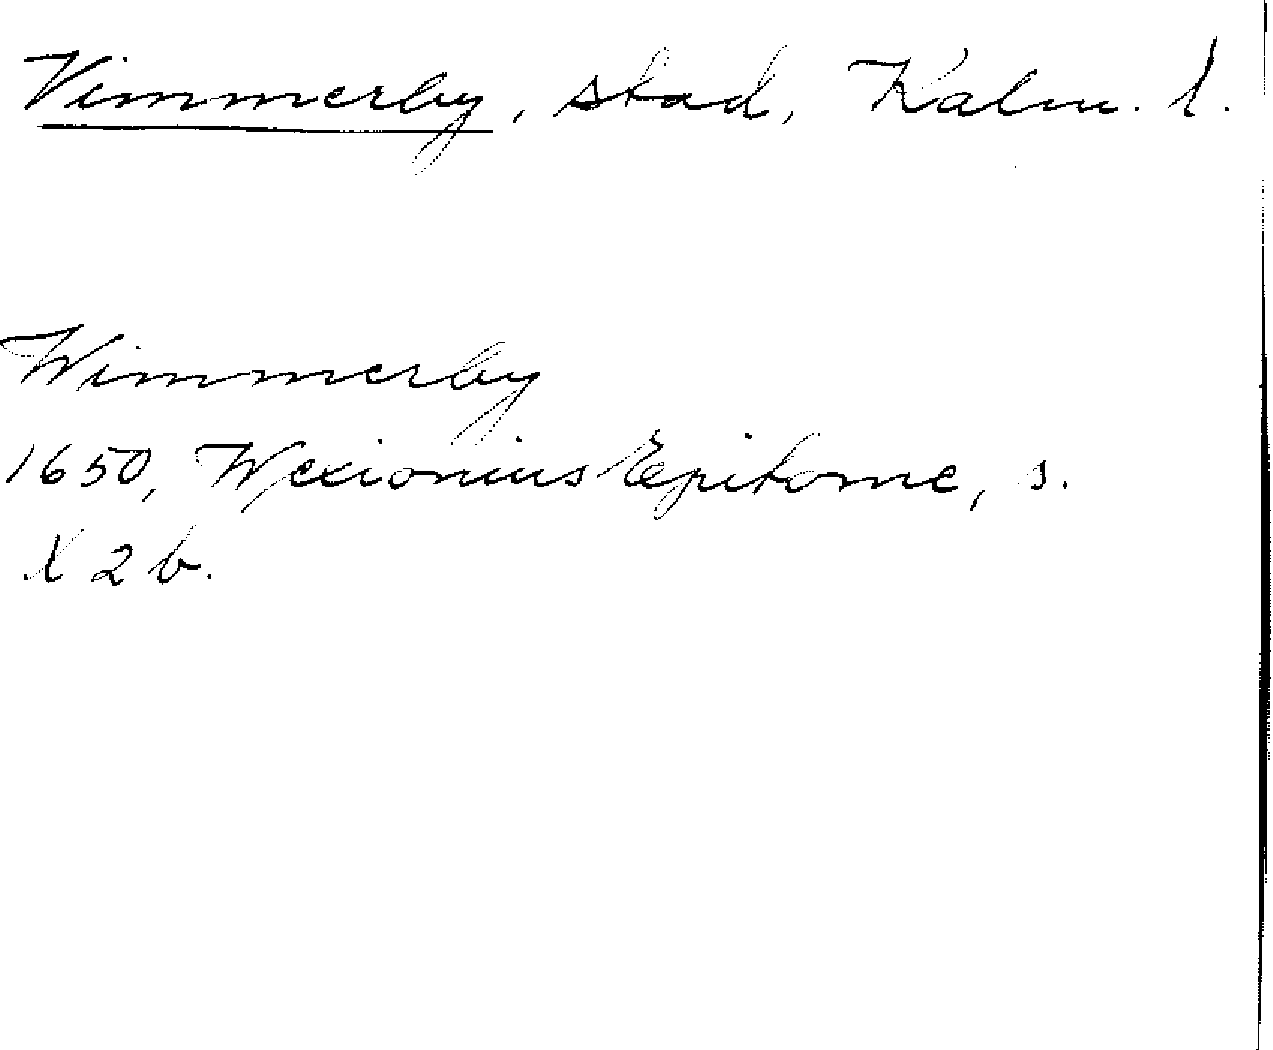 Vimmerby, stad, Kalm. l.
Wimmerby
1650, Wexionius Epitome, s.
X 2 b.